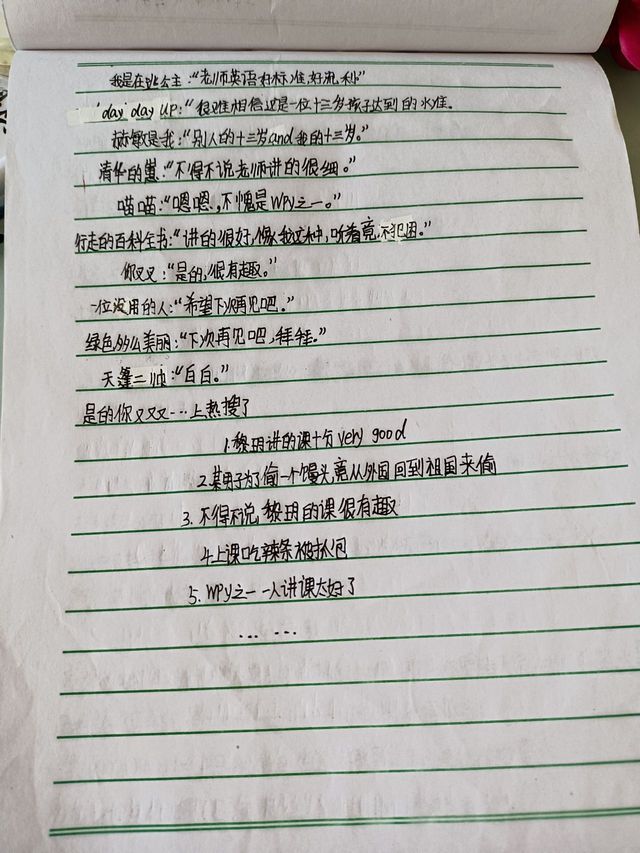 我是在逃公主:“老师英语好标准,好流利”
'day' day UP:“很难相信这是一位十三岁孩子达到的水准。
赫敏是我:“别人的十三岁and我的十三岁。”
清华的崽:“不得不说老师讲的很细。”
喵喵:“嗯嗯,不愧是WPY之一。”
行走的百科全书:“讲的很好,像我这种,听着竟不犯困。”
你又又:“是的,很有趣。”
一位没用的人:“希望下次再见吧。”
绿色多么美丽:“下次再见吧,拜拜。”
天蓬二帅:“白白。”
是的你又又又…上热搜了
1.黎玥讲的课十分very good
2.某男子为了偷一个馒头,竟从外国回到祖国来偷
3.不得不说,黎玥的课很有趣
4.上课吃辣条被抓问
5.WPY之一一人讲课太好了
… …